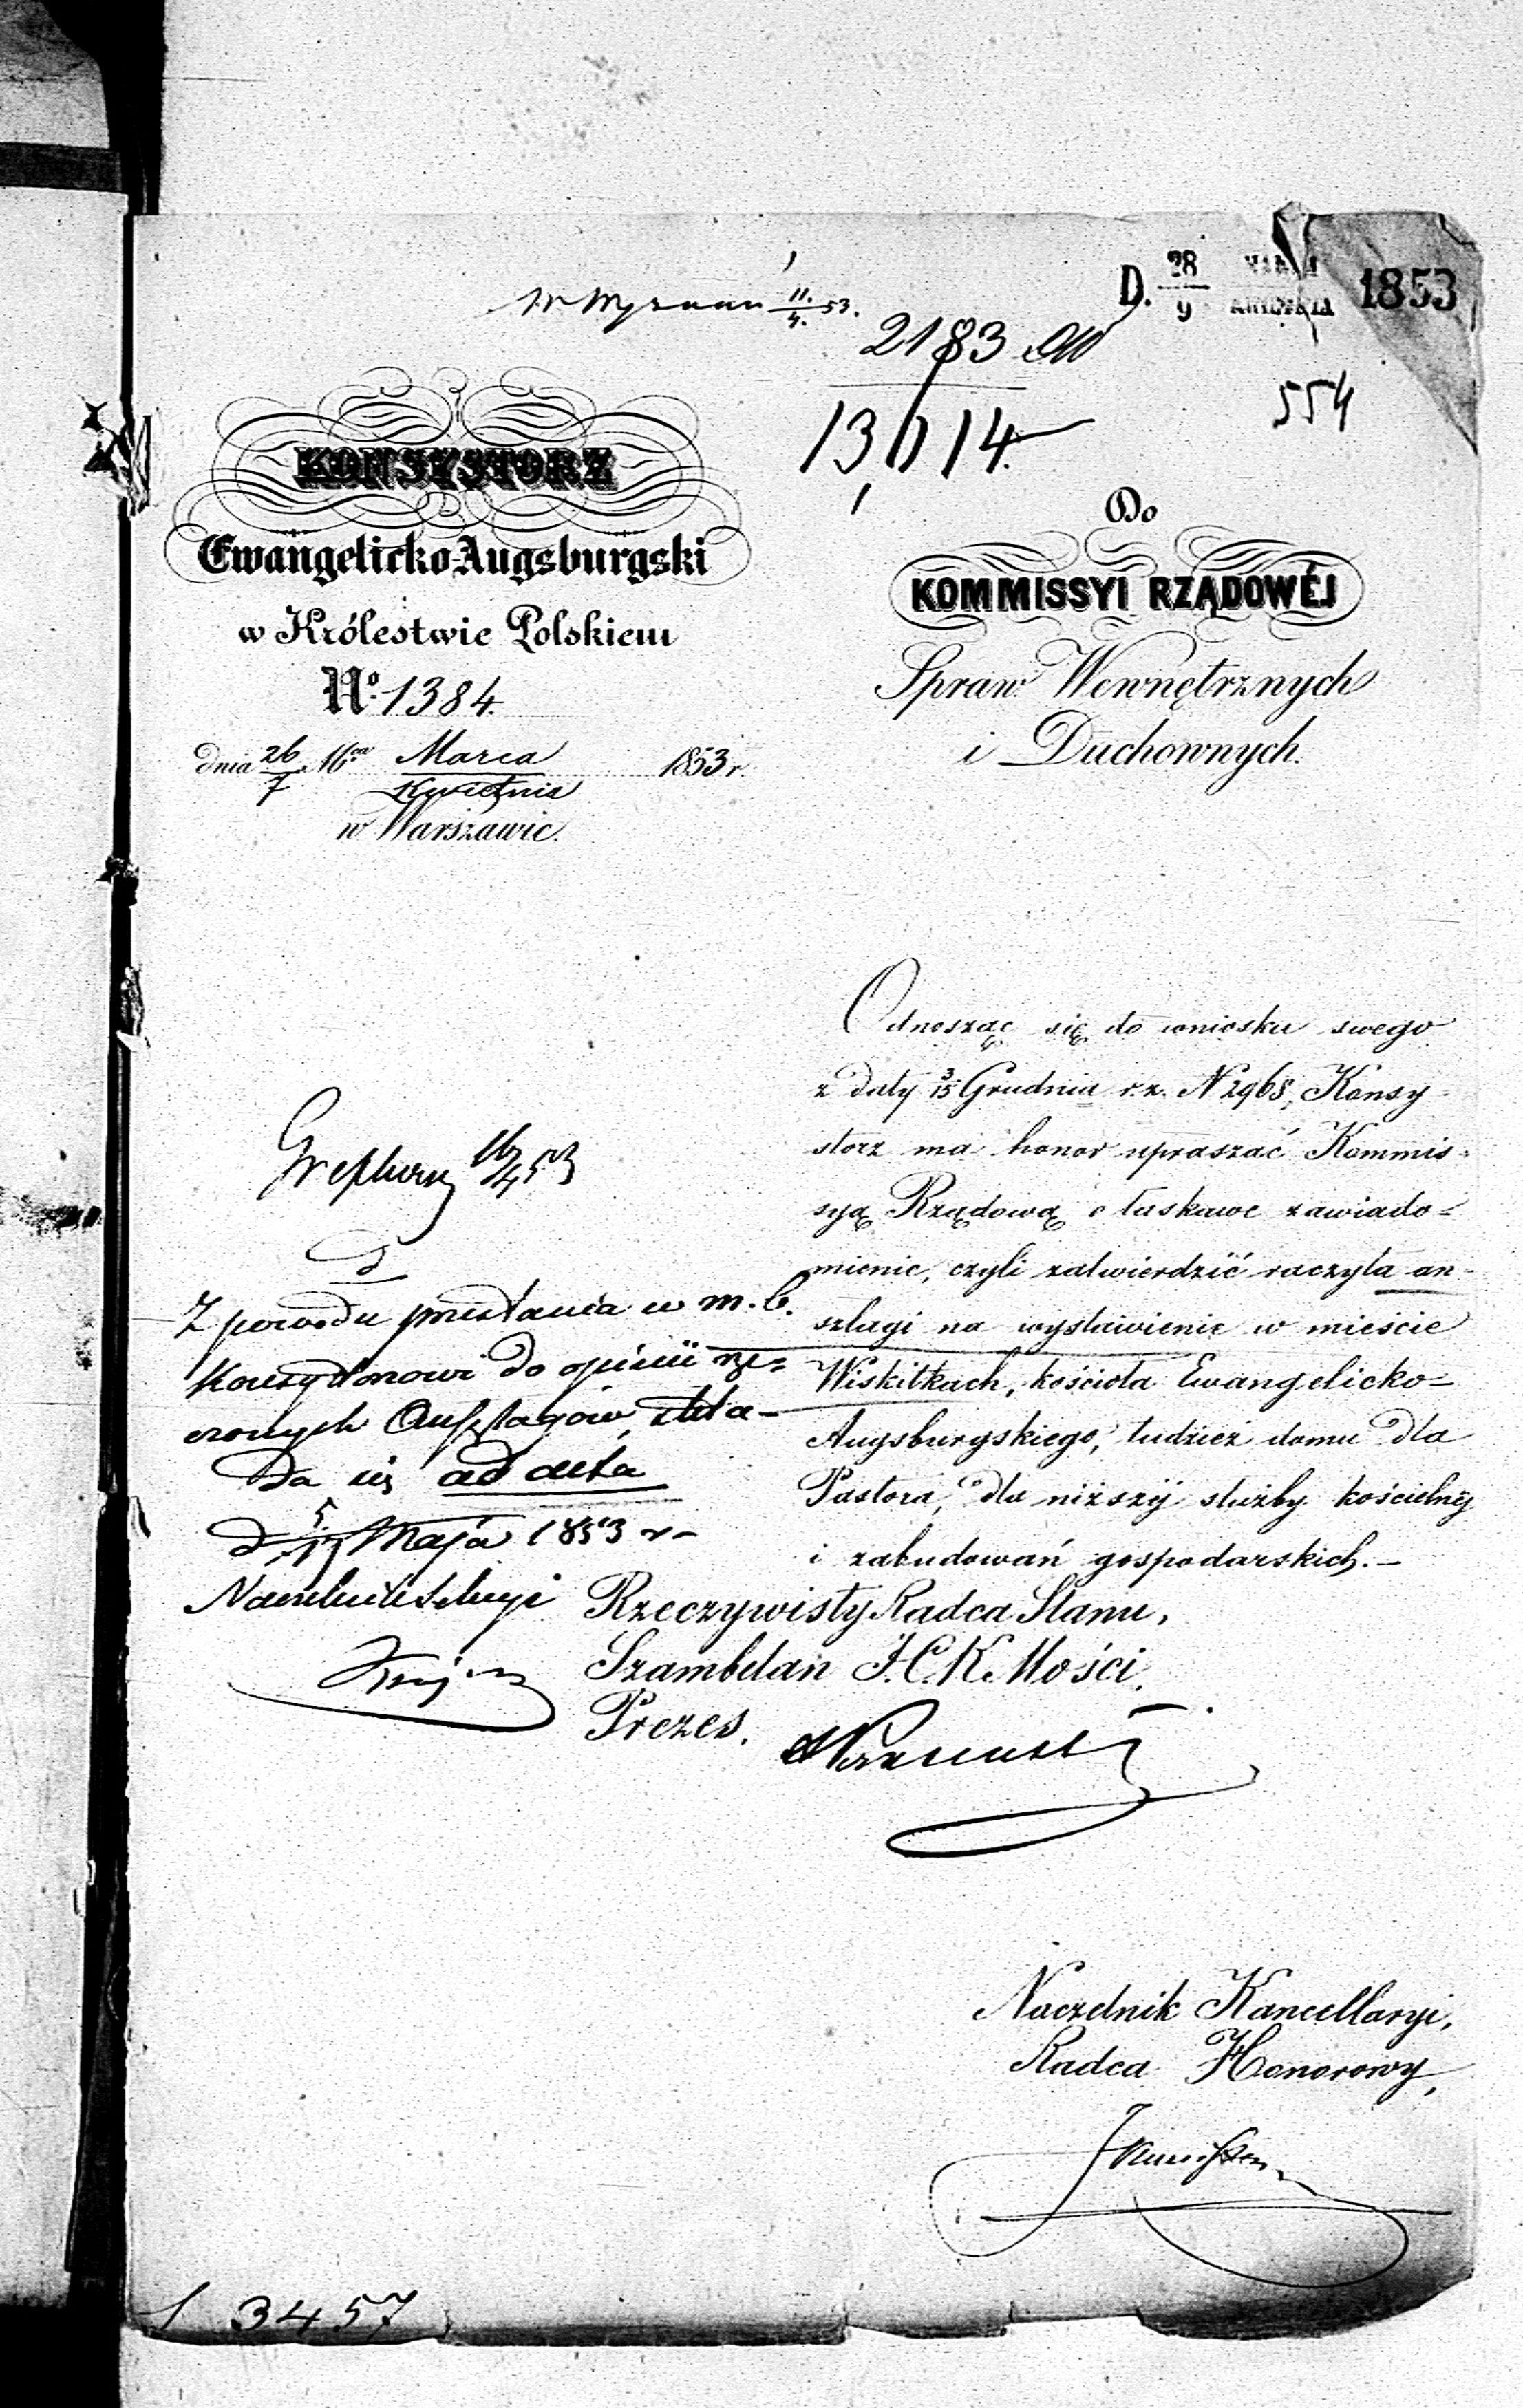 W Wyznań 11./4. 53.
D. 28/9 1853
2183
13614.
554
KONSYSTORZ
Ewangelicko-Augsburgski
w Królestwie Polskiem
No. 1384.
dnia 26/7 Mca Marca/Kwietnia 1853 r.
w Warszawie.
Do
KOMMISSYI RZĄDOWÉJ
Spraw Wewnętrznych
i Duchownych.
Odnosząc się do wniosku swego
z daty 3/15 Grudnia r.z. N 2968, Konsy-
storz ma honor upraszać Kommis-
syą Rządową o łaskawe zawiado=
mienie, czyli zatwierdzić raczyła an-
szlagi na wystawienie w mieście
Wiskitkach, kościoła Ewangelicko=
Augsburgskiego, tudzież domu dla
Pastora, dla niższej służby kościelnéj
i zabudowań gospodarskich.-
Rzeczywisty Radca Stanu,
Szambelan J.C.K. Mości,
Prezes.
Naczelnik Kancellaryi,
Radca Honorowy,
16/4 53
Z powodu przesłania w m. b.
Konsystorzowi do opinii rze=
czonych Anszlagów, skła-
da się ad acta
d. 5/17 Maja 1853 r-
Naczelnik Sekcyi
1 3457